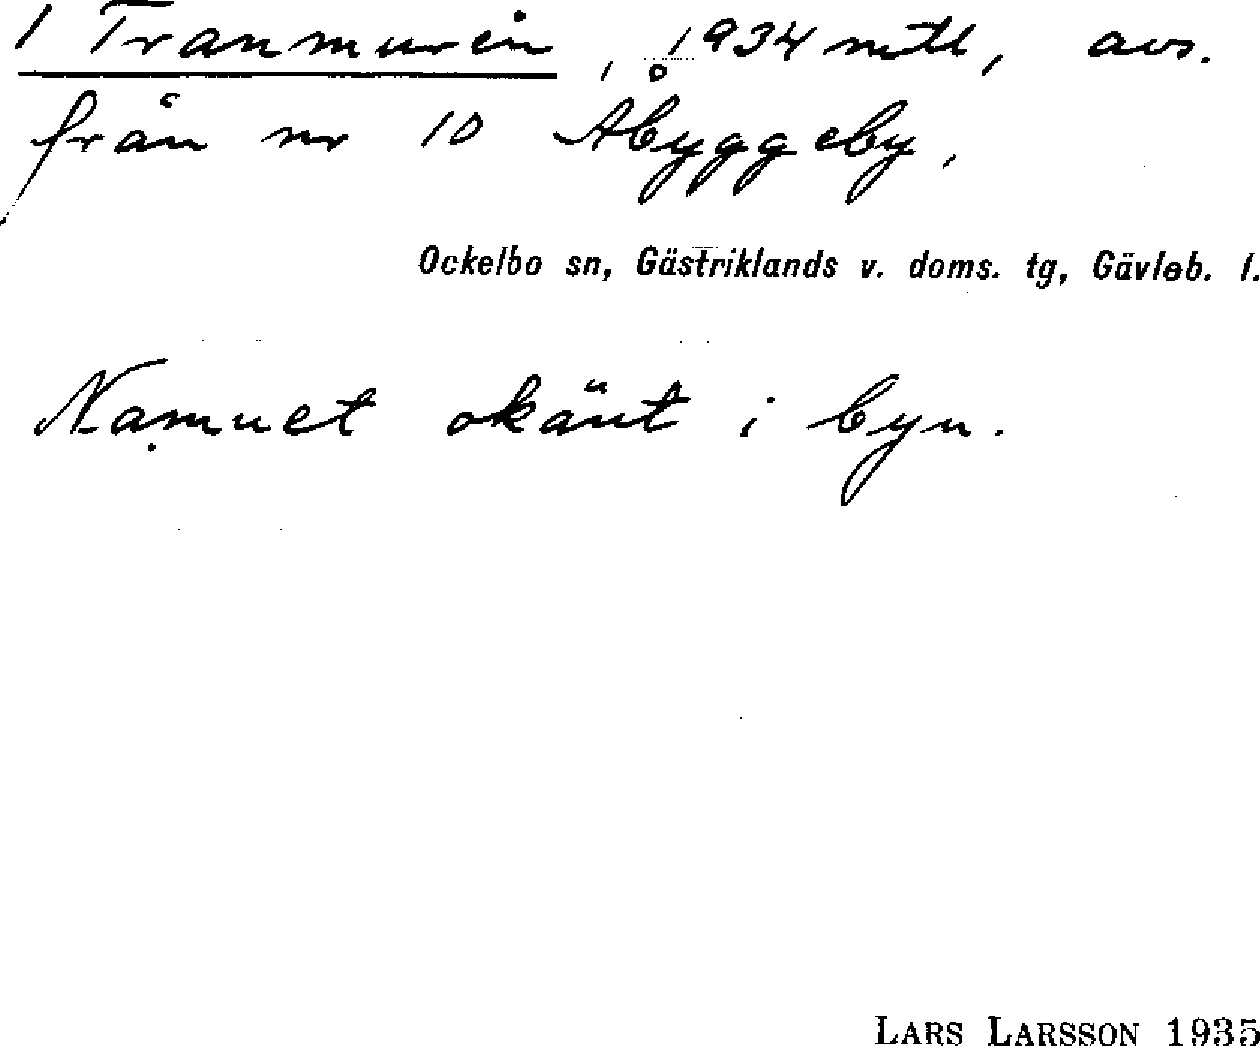 1 Tranmuren, 1934 mtl, avs.
från nr 10 Åbyggeby,
Ockelbo sn, Gästriklands v. doms. tg, Gävleb. l.
Namnet okänt i byn.
LARS LARSSON 1935